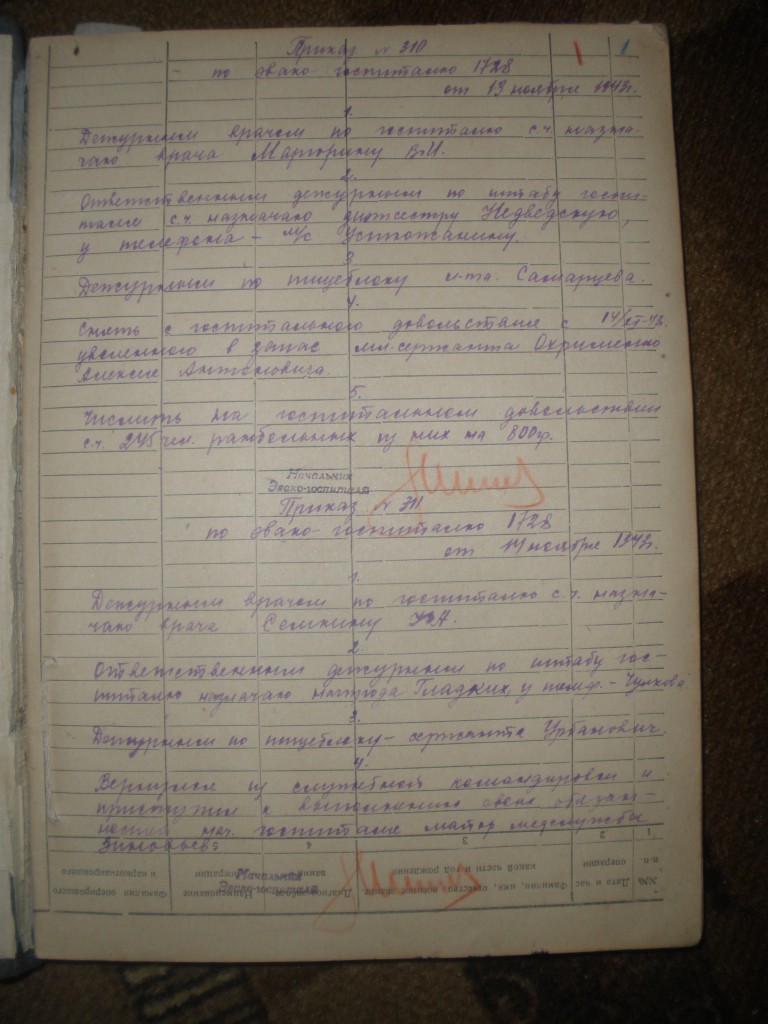 Приказ № 310
по эвако-госпиталю 1728
от 13 ноября 1943г.
1.
Дежурным врачом по госпиталю с.ч. назна-
чаю врача Маргорину В.И.
2.
Ответственным дежурным по штабу госпи-
таля с.ч. назначаю диэтсестру Недведскую,
у телефона - м/с Устюжанину.
3
Дежурным по пищеблоку л-та. Самарцева.
4.
Снять с госпитального довольствия с 14/XI-43.
уволенного в запас мл. сержанта Охрименко
Алексея Антоновича.
5.
Числить на госпитальном довольствии
с.ч. 245 чел. ранбольных из них на 800гр.
Начальник
Эвако-госпиталя
Приказ № 311
по эвако-госпиталю 1728
от 14 ноября 1943г.
1.
Дежурным врачом по госпиталю с.ч. назна-
чаю врача Семкину
2.
Ответственным дежурным по штабу гос-
питалю назначаю Гладких, у телеф. - Чулкова
3.
Дежурным по пищеблоку - сержанта Урбанович.
4.
Вернулся из служебной командировки и
приступил к выполнению своих обязан-
ностей нач. госпиталя майор медслужбы
Зиновьев
1 2 3 4 5
№№ п.п.
Дата и час операции
Фамилия, имя, отчество, военное звание, какой части и год рождения
Диагноз
Наименование операции
Фамилия оперировавшего и наркотизировавшего
Начальник
Эвако-госпиталя